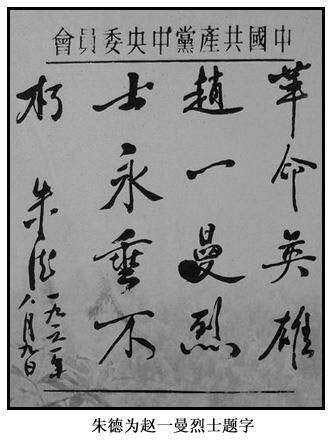 中國共產黨中央委員會
革命英雄
趙一曼烈
士永垂不
朽
朱德
一九六一年
八月九日
朱德为赵一曼烈士题字